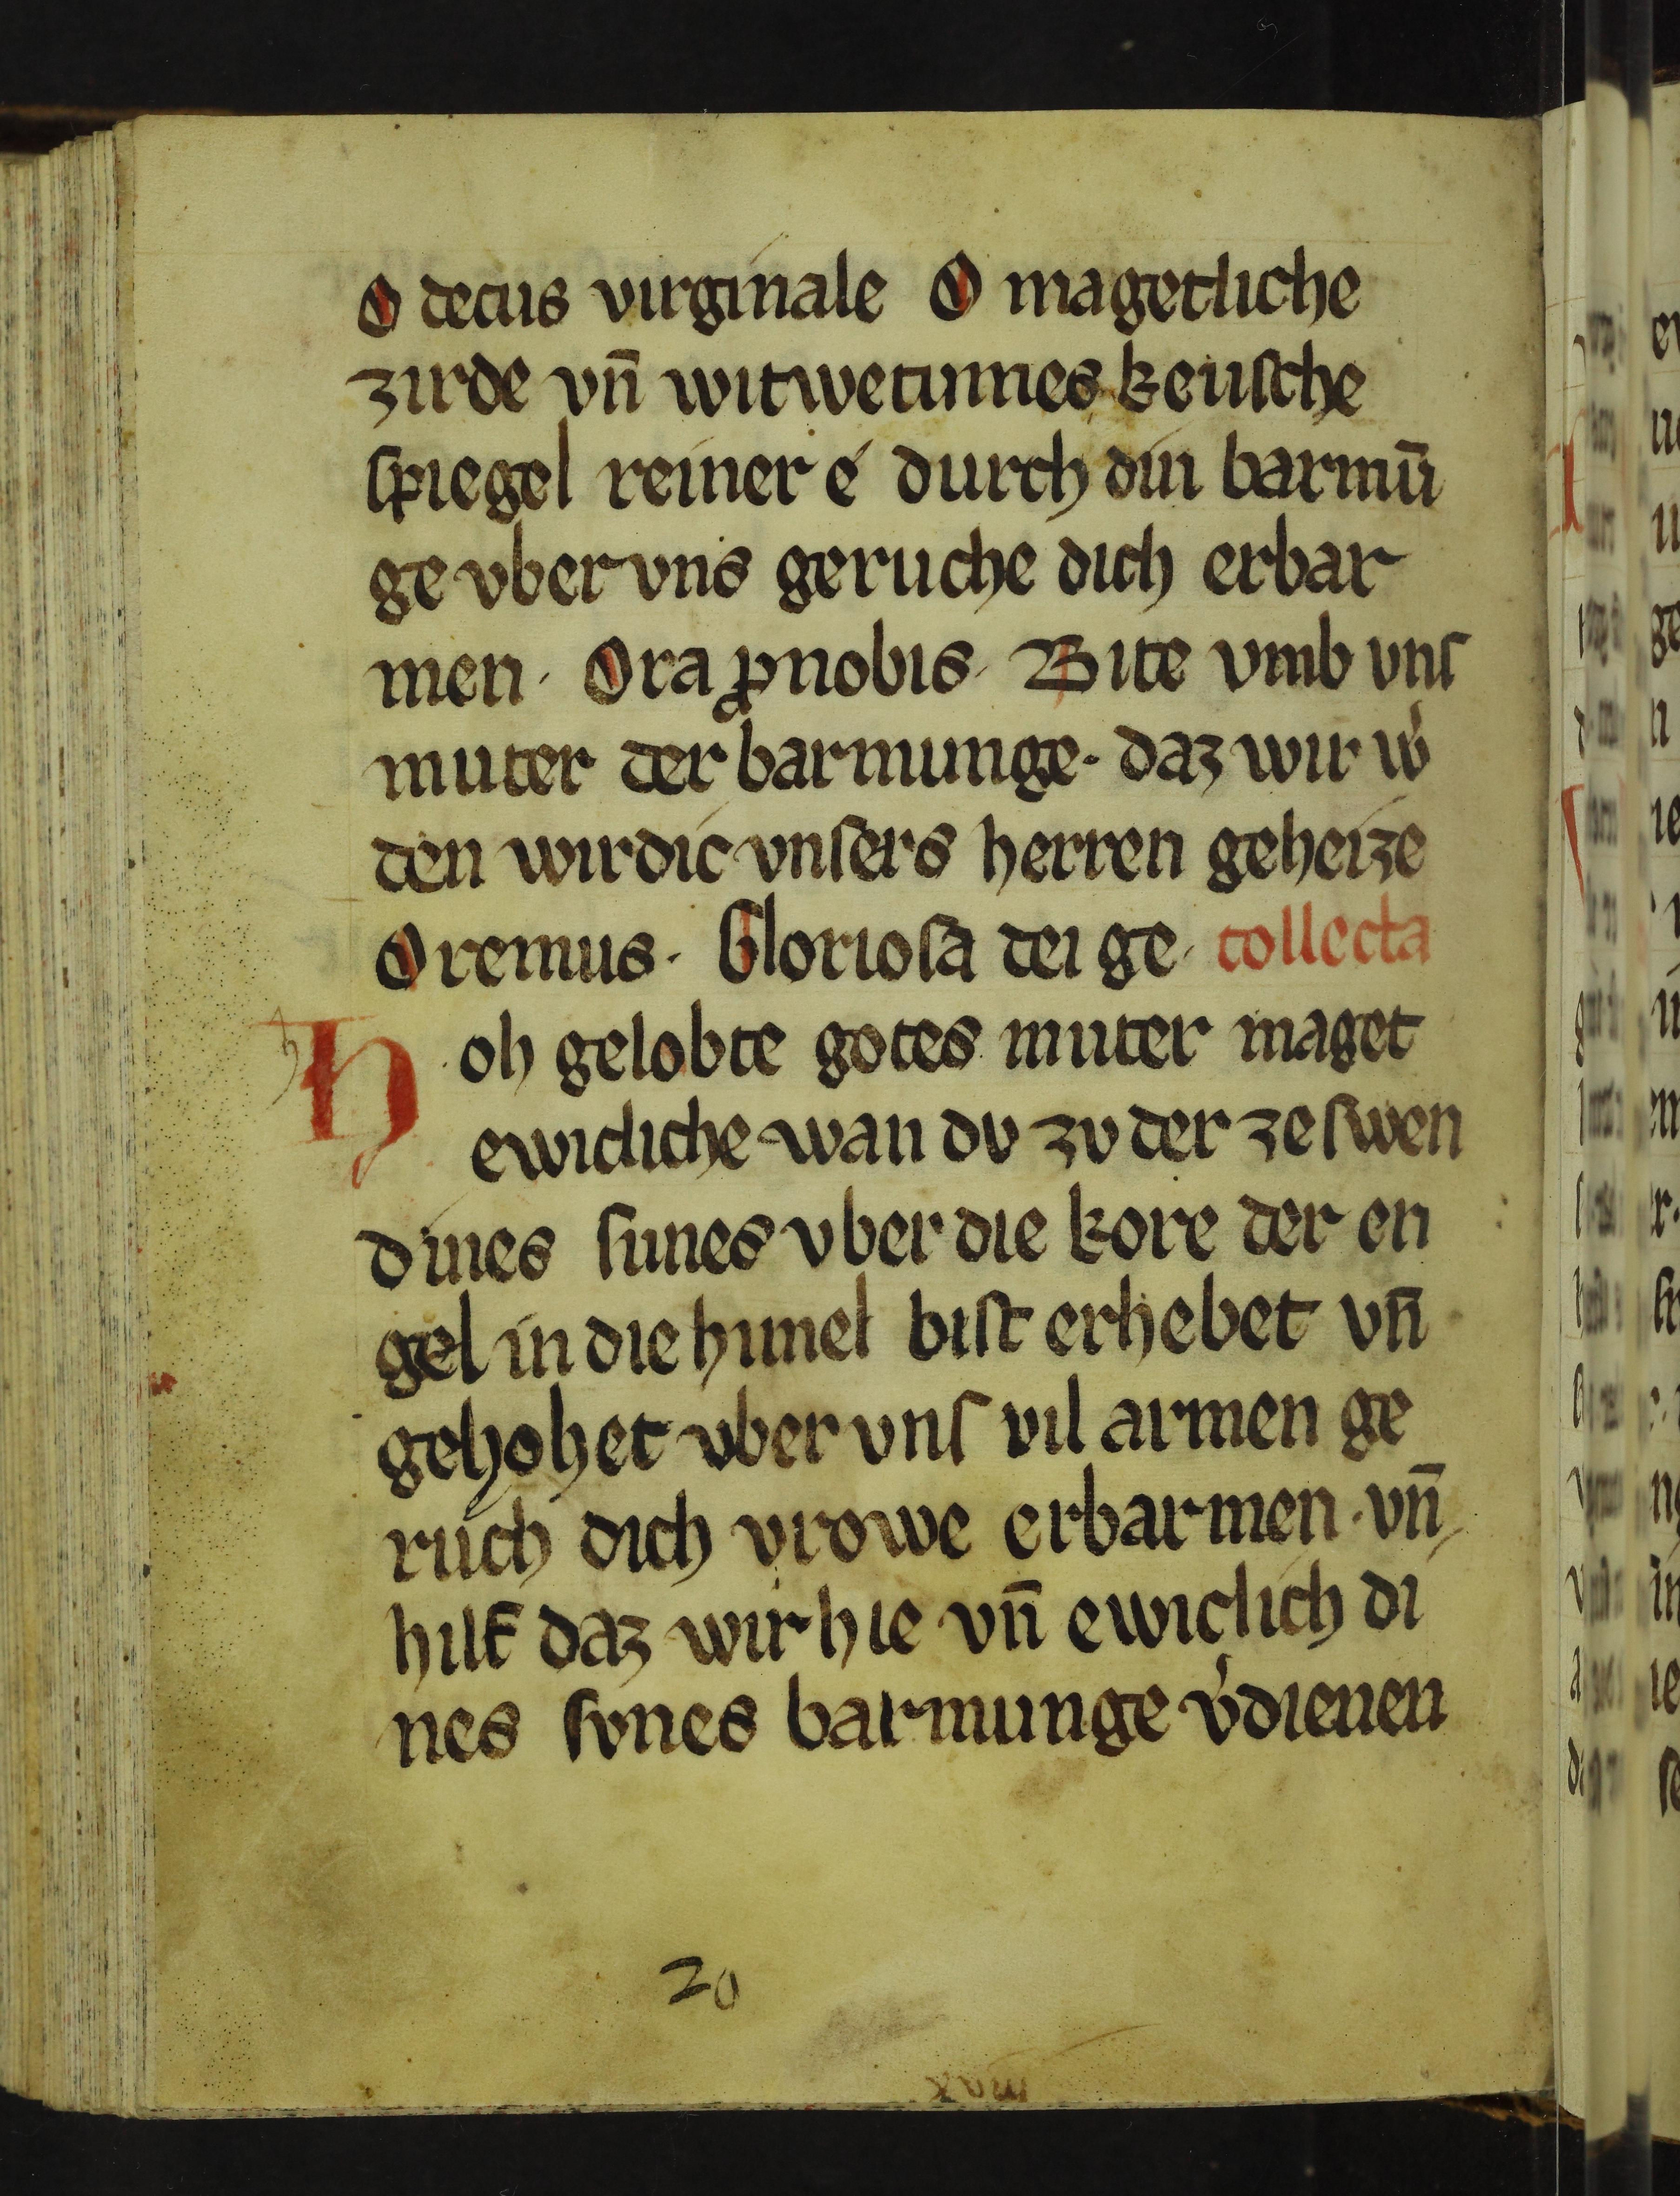 O decus virginale O magetliche
zirde vn̄ witwetumes keusche
spiegel reiner é durch din barmū
ge vber vns geruche dich erbar
men · Ora ꝓ nobis · Bite vmb vnſ
muter der barmunge · daz wir w̉
den wirdic vnſers herren geheize
Oremus · Glorioſa dei ge · collecta
Hoh gelobte gotes muter maget
ewicliche wan dv zv der zeſwen
dines ſunes vber die kore der en
gel in die himel biſt erhebet vn̄
gehohet vber vnſ vil armen ge
ruch dich vrowe erbarmen · vn̄
hilf daz wir hie vn̄ ewiclich di
nes ſvnes barmunge v̉dienen
20